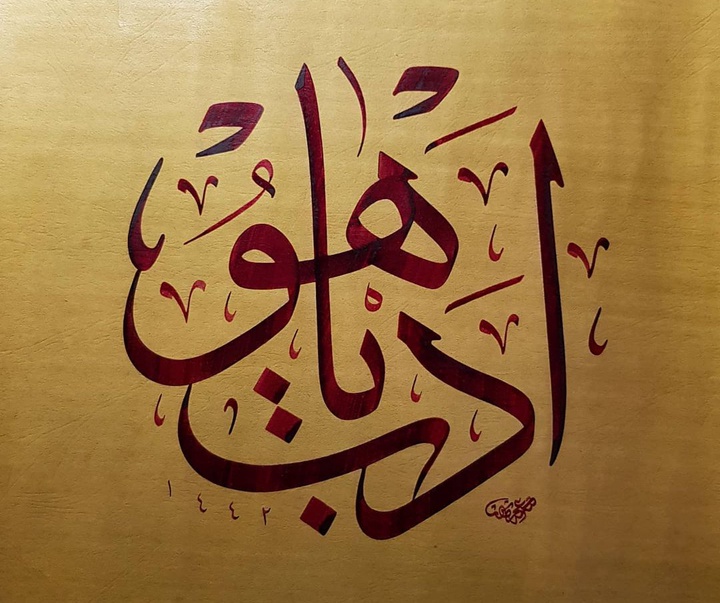 ادب يا هو
١٤٤٢